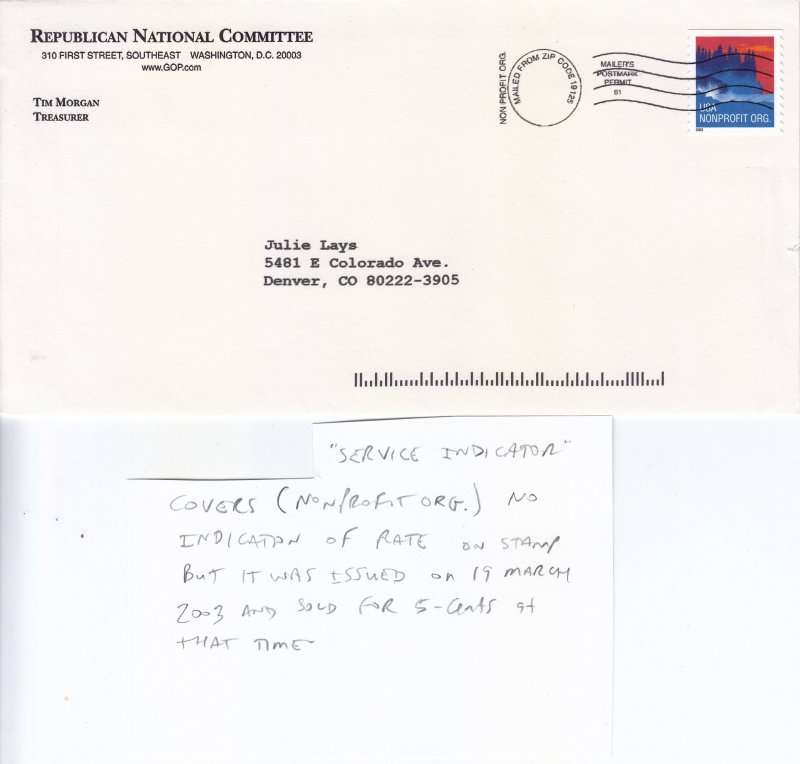 REPUBLICAN NATIONAL COMMITTEE
310 FIRST STREET, SOUTHEAST WASHINGTON, D.C. 20003
www.GOP.com
TIM MORGAN
TREASURER
NON PROFIT ORG.
MAILED FROM ZIP CODE 19125
MAILER'S
POSTMARK
PERMIT
81
USA
NONPROFIT ORG.
Julie Lays
5481 E Colorado Ave.
Denver, CO 80222-3905
"SERVICE INDICATOR"
COVERS (NONPROFIT ORG.) NO
INDICATION OF RATE ON STAMP
BUT IT WAS ISSUED ON 19 MARCH
2003 AND SOLD FOR 5-CENTS at
THAT TIME